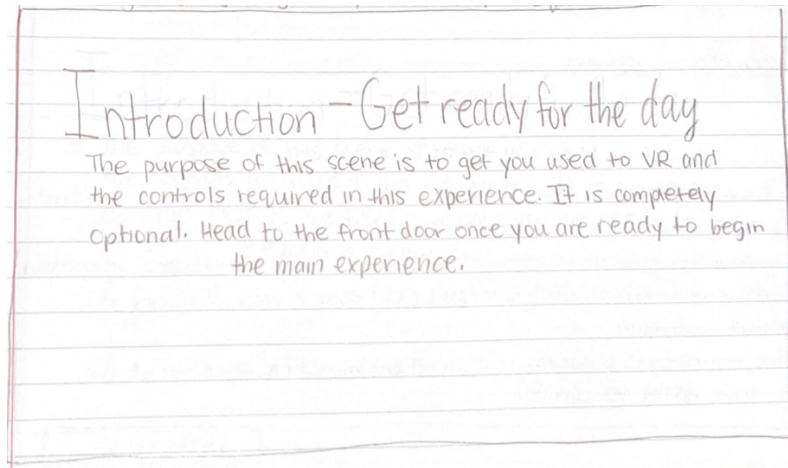 Introduction - Get ready for the day
The purpose of this scene is to get you used to VR and
the controls required in this experience. It is completely
optional. Head to the front door once you are ready to begin
the main experience.